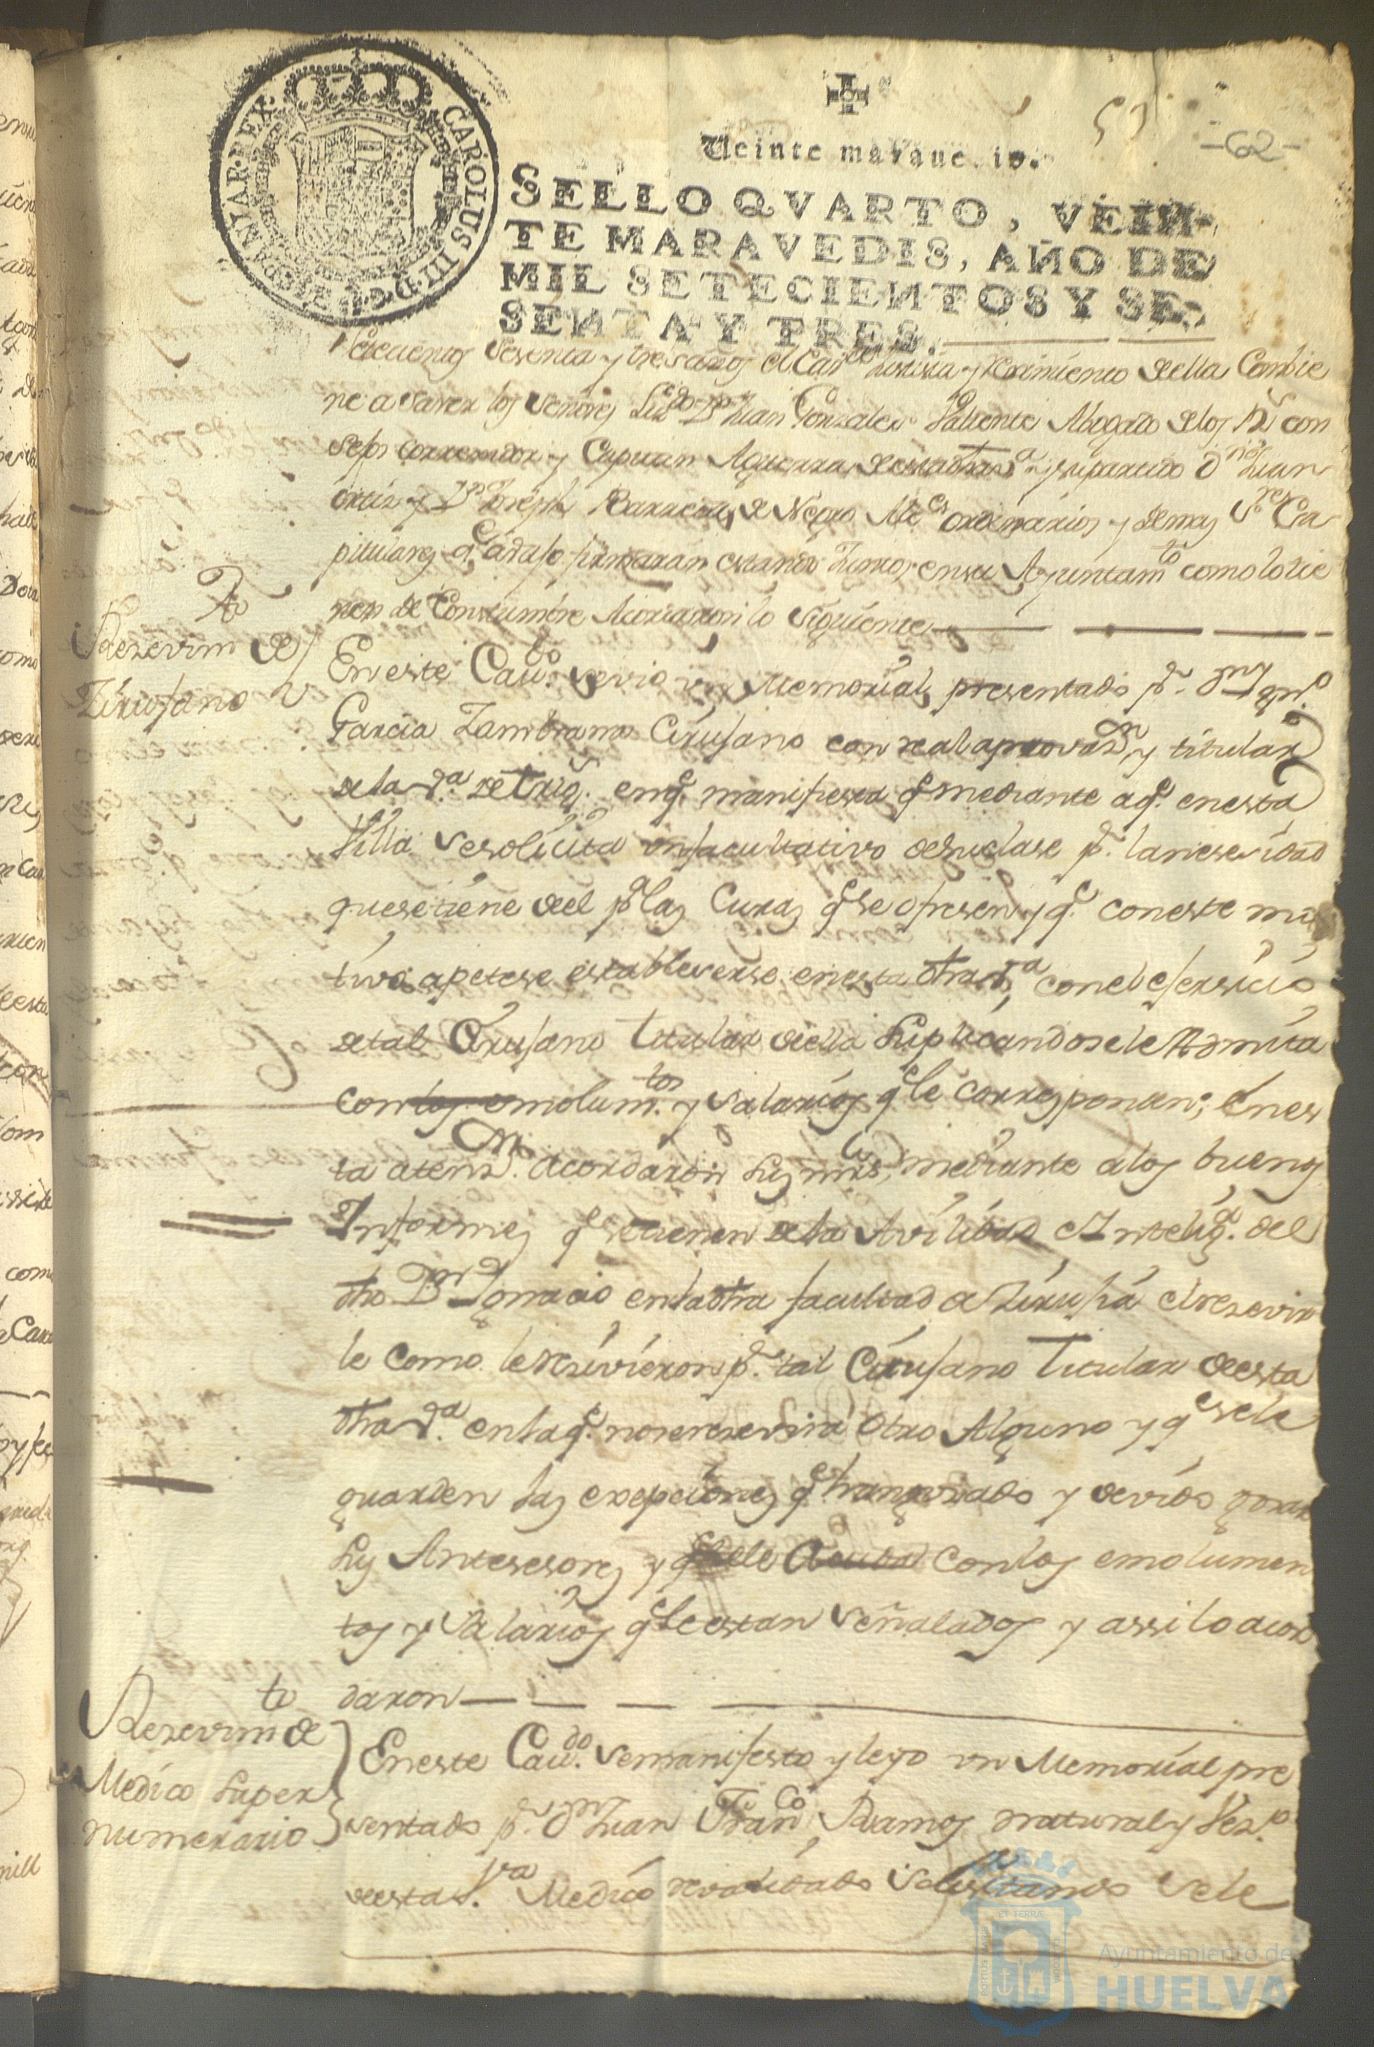 53
-62-
CAROLUS III D. G. HISPANIAR. REX.
Veinte maravedis.
SELLO QVARTO, VEIN-
TE MARAVEDIS, AÑO DE
MIL SETECIENTOS Y SE-
SENTA Y TRES.
setecientos sesenta y tres años el Cavdo Justicia y Reximiento de ella Combie
ne a saver los señores Lizdo Dn Juan Gonzales Valiente Abogado de los Rs con
sejos correxidor y Capitan Aguerra de esta dha va y su partido Dn Juan
ortiz y Dn Joseph Barrera de Negro Alces ordinarios y demas Sres Ca
pitulares qe adaso firmaran estando Juntos en su Ayuntamto como lo tie
nen de Constumbre Acordaron lo siguiente
Rezevimto de
Zirujano
En este Cavdo se vio un Memorial presentado pr Dn Ignco
Garcia Zambrano Cirujano con real aprovazn y titular
de la va de Trigs en qe manifiesta qe mediante a qe en esta
Villa se solicita un facultativo de su clase pr la nesesidad
que se tiene de el pa las Curas qe se ofresen y qe con este mo
tivo apetese estableserse en esta dha va con el exersicio
de tal Cirujano Titular de ella suplicando se le Admita
con los emolumtos y salarios qe le correspondan; en es
ta atenzn Acordaron sus mrds, mediante a los buenos
Informes qe se tienen de la Avilidad e Inteliga del
dho Dn Ignacio en la dha facultad de Zirujia el rezevir
le como le rezivieron pr tal Cirujano Titular de esta
dha va en la qe no se rezevira otro Alguno y qe se le
guarden las exepciones qe han gosado y devido gosar
sus Antesesores y qe se le Acuda con los emolumen
tos y Salarios qe le estan señalados y assi lo acor
daron
Rezevimto de
Medico super
numerario
En este Cavdo se manifesto y leyo un Memorial pre
sentado pr Dn Juan Franco Ramos natural y Vezo
de esta va Medico revalidado solisitando se le
Ayuntamiento de
HUELVA